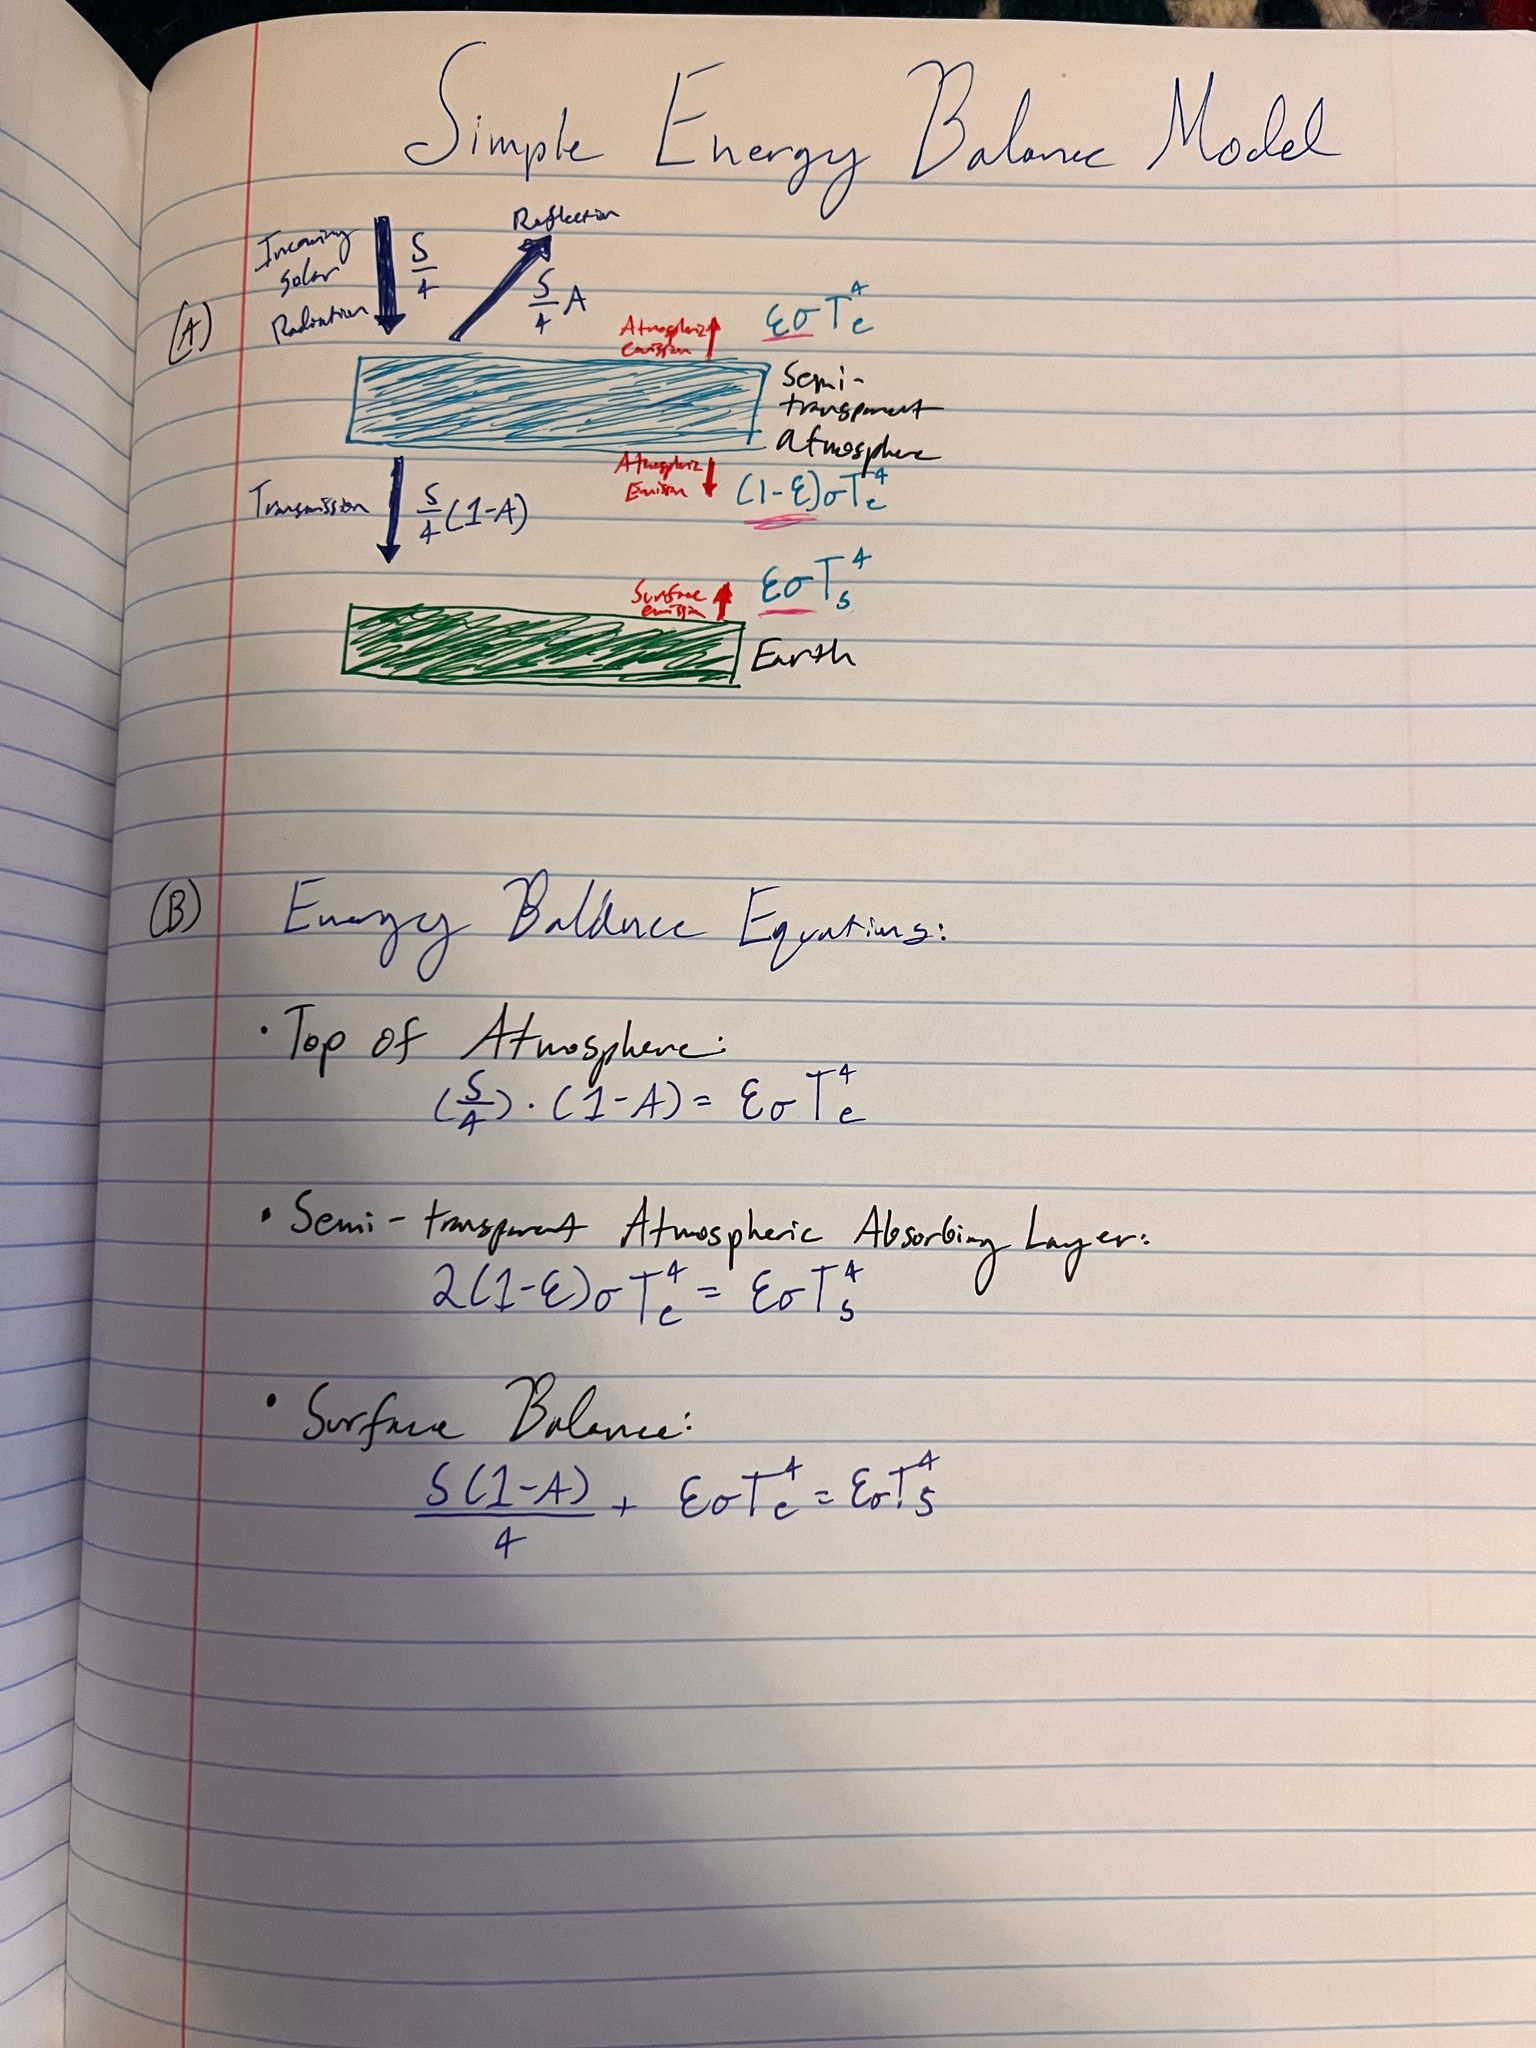 Simple Energy Balance Model
(A)
Incoming
solar
Radiation
S/4
Reflection
S/4 A
Atmospheric
emission
εσTe^4
Semi-
transparent
atmosphere
Transmission
S/4 (1-A)
Atmospheric
Emission
(1-ε)σTe^4
Surface
emission
εσTs^4
Earth
(B) Energy Balance Equations:
• Top of Atmosphere:
(S/4) · (1-A) = εσTe^4
• Semi-transparent Atmospheric Absorbing Layer:
2(1-ε)σTe^4 = εσTs^4
• Surface Balance:
S(1-A)/4 + εσTe^4 = εσTs^4